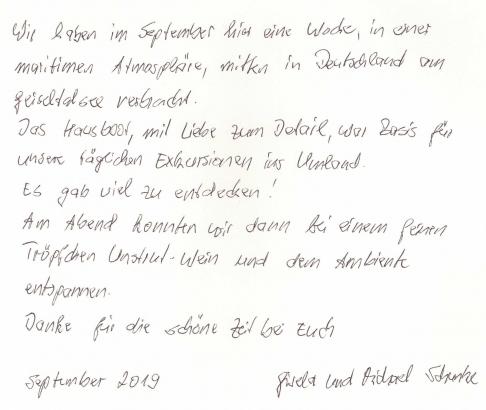 Wir haben im September hier eine Woche, in einer
maritimen Atmosphäre, mitten in Deutschland am
Geiseltalsee verbracht.
Das Hausboot, mit Liebe zum Detail, war Basis für
unsere täglichen Exkursionen ins Umland.
Es gab viel zu entdecken!
Am Abend konnten wir dann bei einem feinen
Tröpfchen Unstrut-Wein und dem Ambiente
entspannen.
Danke für die schöne Zeit bei Euch
September 2019
Gisela und Michael